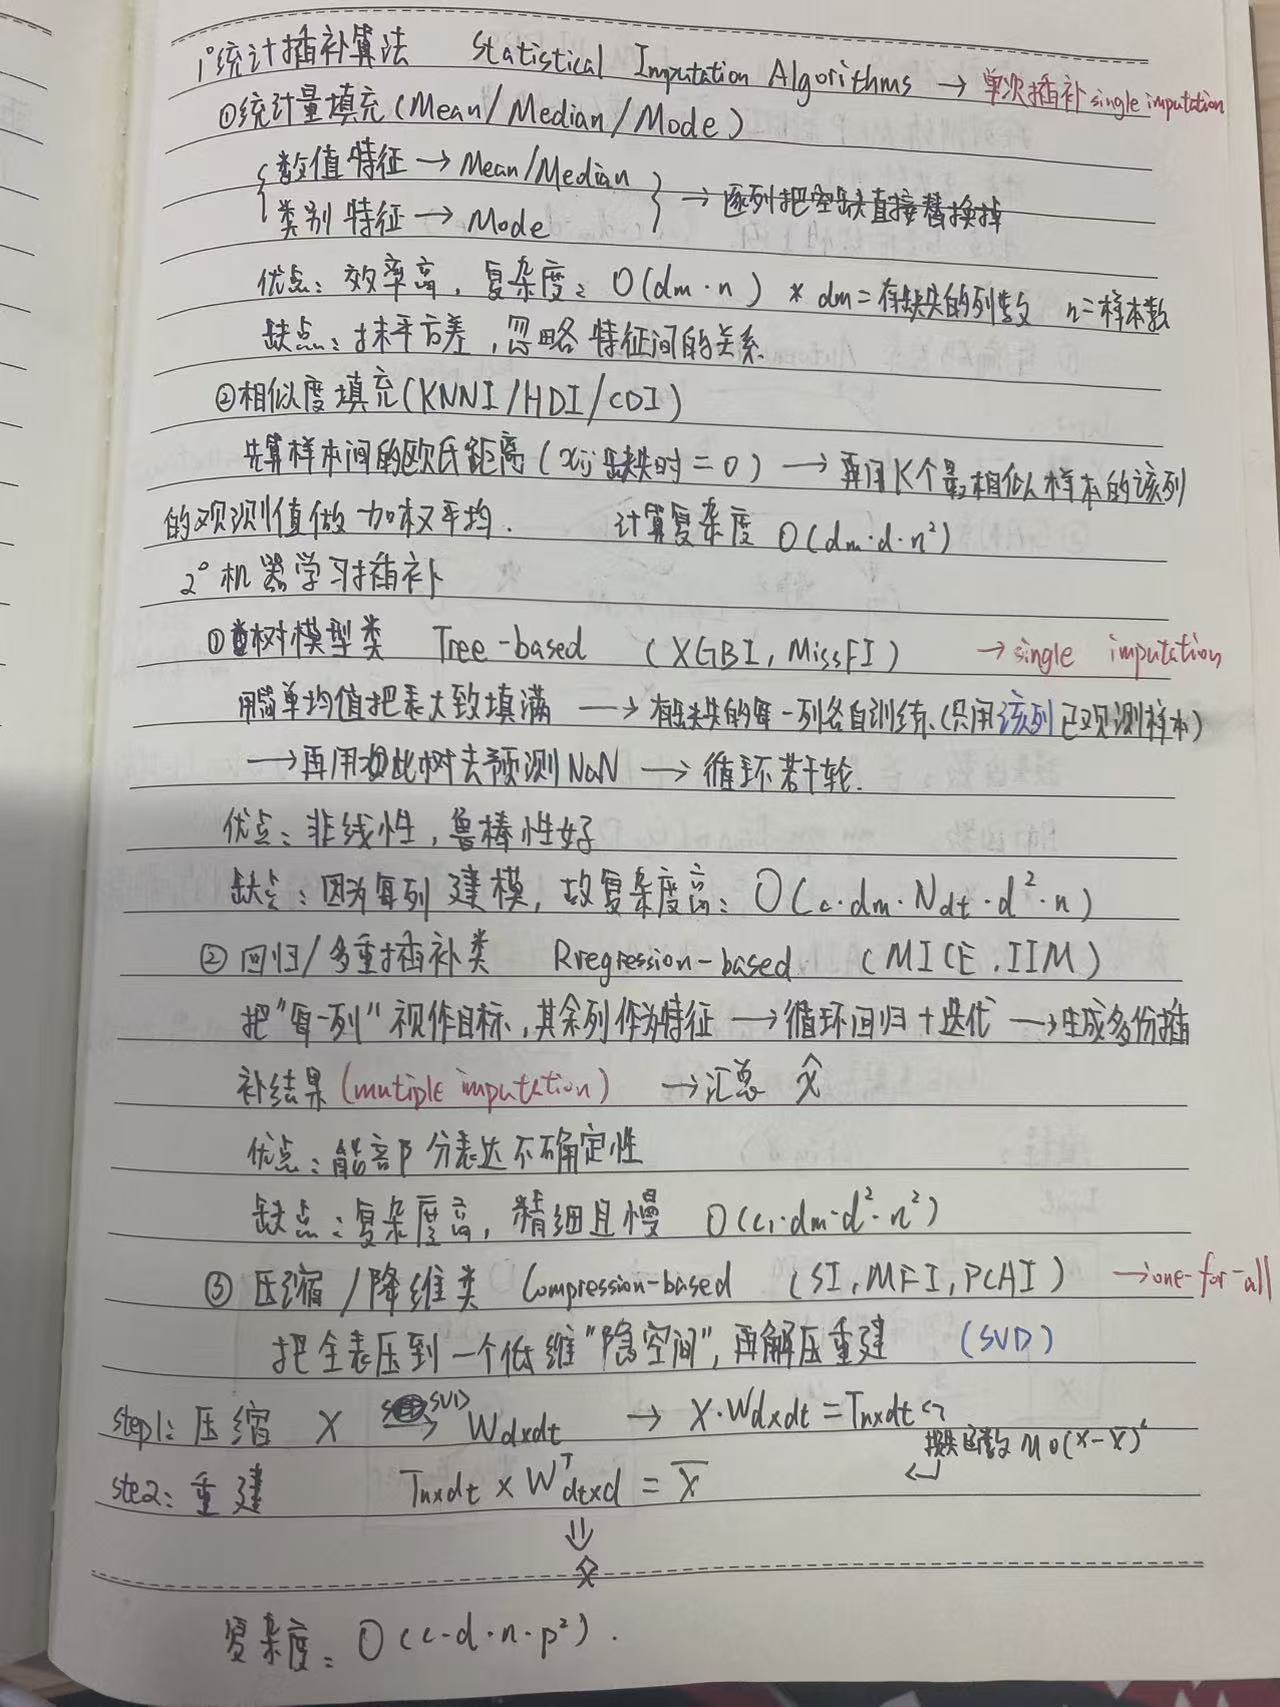 1° 统计插补算法 Statistical Imputation Algorithms → 单次插补 single imputation
①统计量填充(Mean/Median/Mode)
{ 数值特征 → Mean/Median
类别特征 → Mode } → 逐列把空缺直接替换掉
优点：效率高，复杂度：O(dm·n) * dm=有缺失的列数 n=样本数
缺点：抹平方差，忽略特征间的关系.
②相似度填充(KNNI/HDI/CDI)
先算样本间的欧氏距离(xij缺失时=0) → 再用K个最相似样本的该列
的观测值做加权平均. 计算复杂度 O(dm·d·n²)
2° 机器学习插补
①树模型类 Tree-based (XGBI, MissFI) → single imputation
用简单均值把表大致填满 → 有缺失的每一列各自训练.(只用该列已观测样本)
→再用此树去预测NaN → 循环若干轮.
优点：非线性，鲁棒性好
缺点：因为每列建模，故复杂度高：O(c·dm·Ndt·d²·n)
② 回归/多重插补类 Rregression-based (MICE,IIM)
把"每一列"视作目标，其余列作为特征 → 循环回归+迭代 → 生成多份插
补结果(mutiple imputation) →汇总 X̂
优点：能部分表达不确定性
缺点：复杂度高，精细且慢 O(c₁·dm·d²·n²)
③ 压缩/降维类 Compression-based (SI,MFI,PCAI) →one-for-all
把全表压到一个低维"隐空间"，再解压重建 (SVD)
step1: 压缩 X SVD→ Wdxdt → X·Wdxdt=Tnxdt
损失函数 M⊙(X-X̄)²
ste2: 重建 Tnxdt × Wᵀdtxd = X̄
⇓
X̂
复杂度：O(c·d·n·p²).